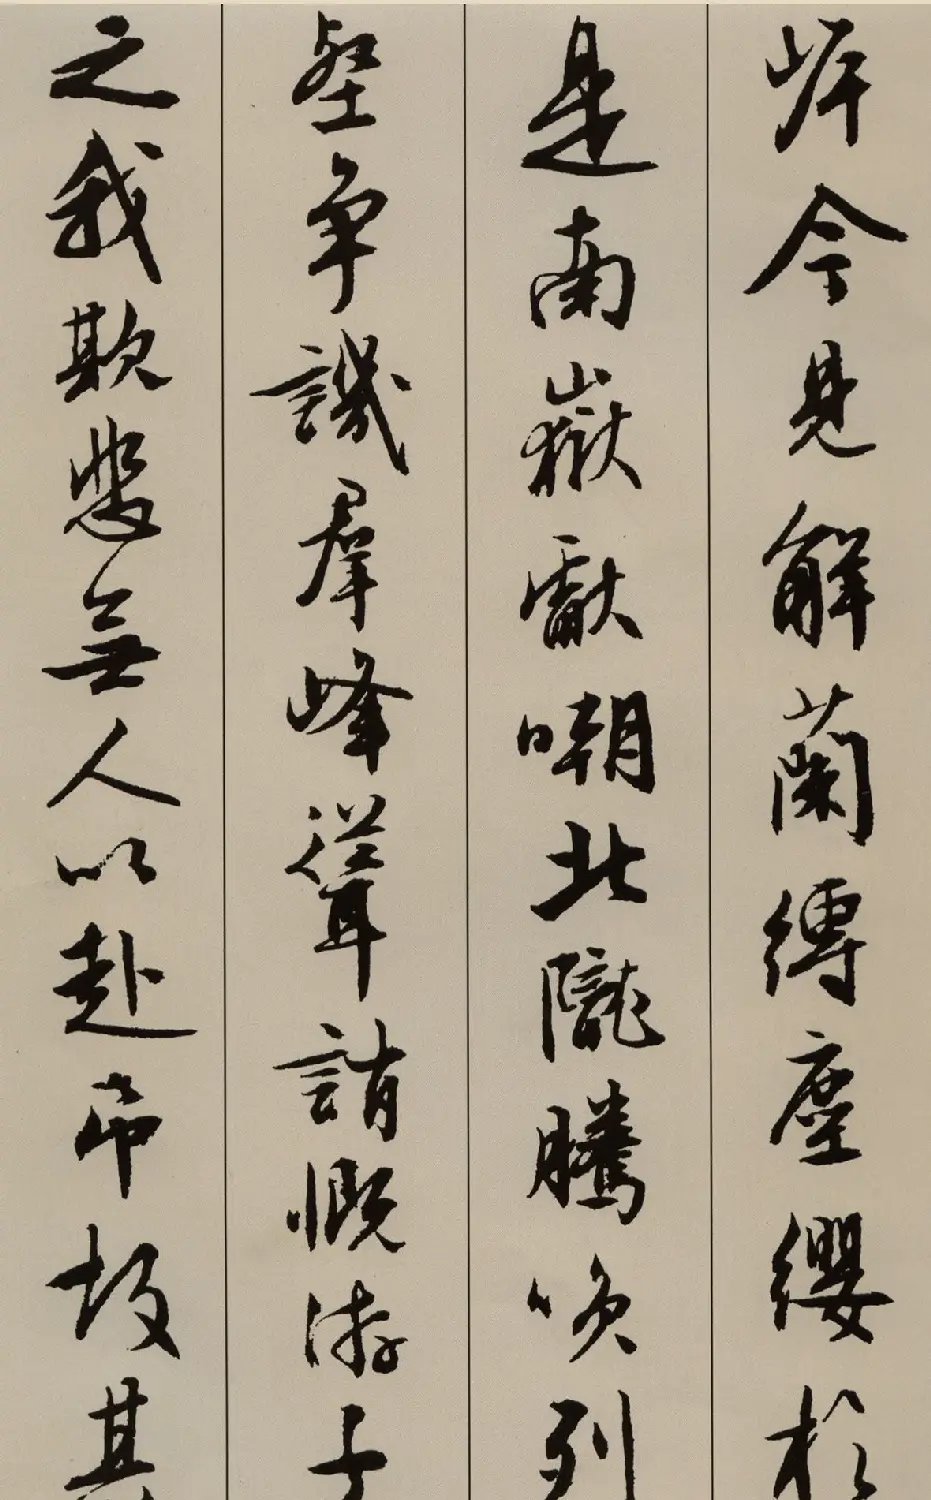 岸今見解蘭縛塵纓於
是南嶽獻嘲北隴騰笑列
壑爭譏羣峰聳誚慨游子
之我欺悲無人以赴弔故其